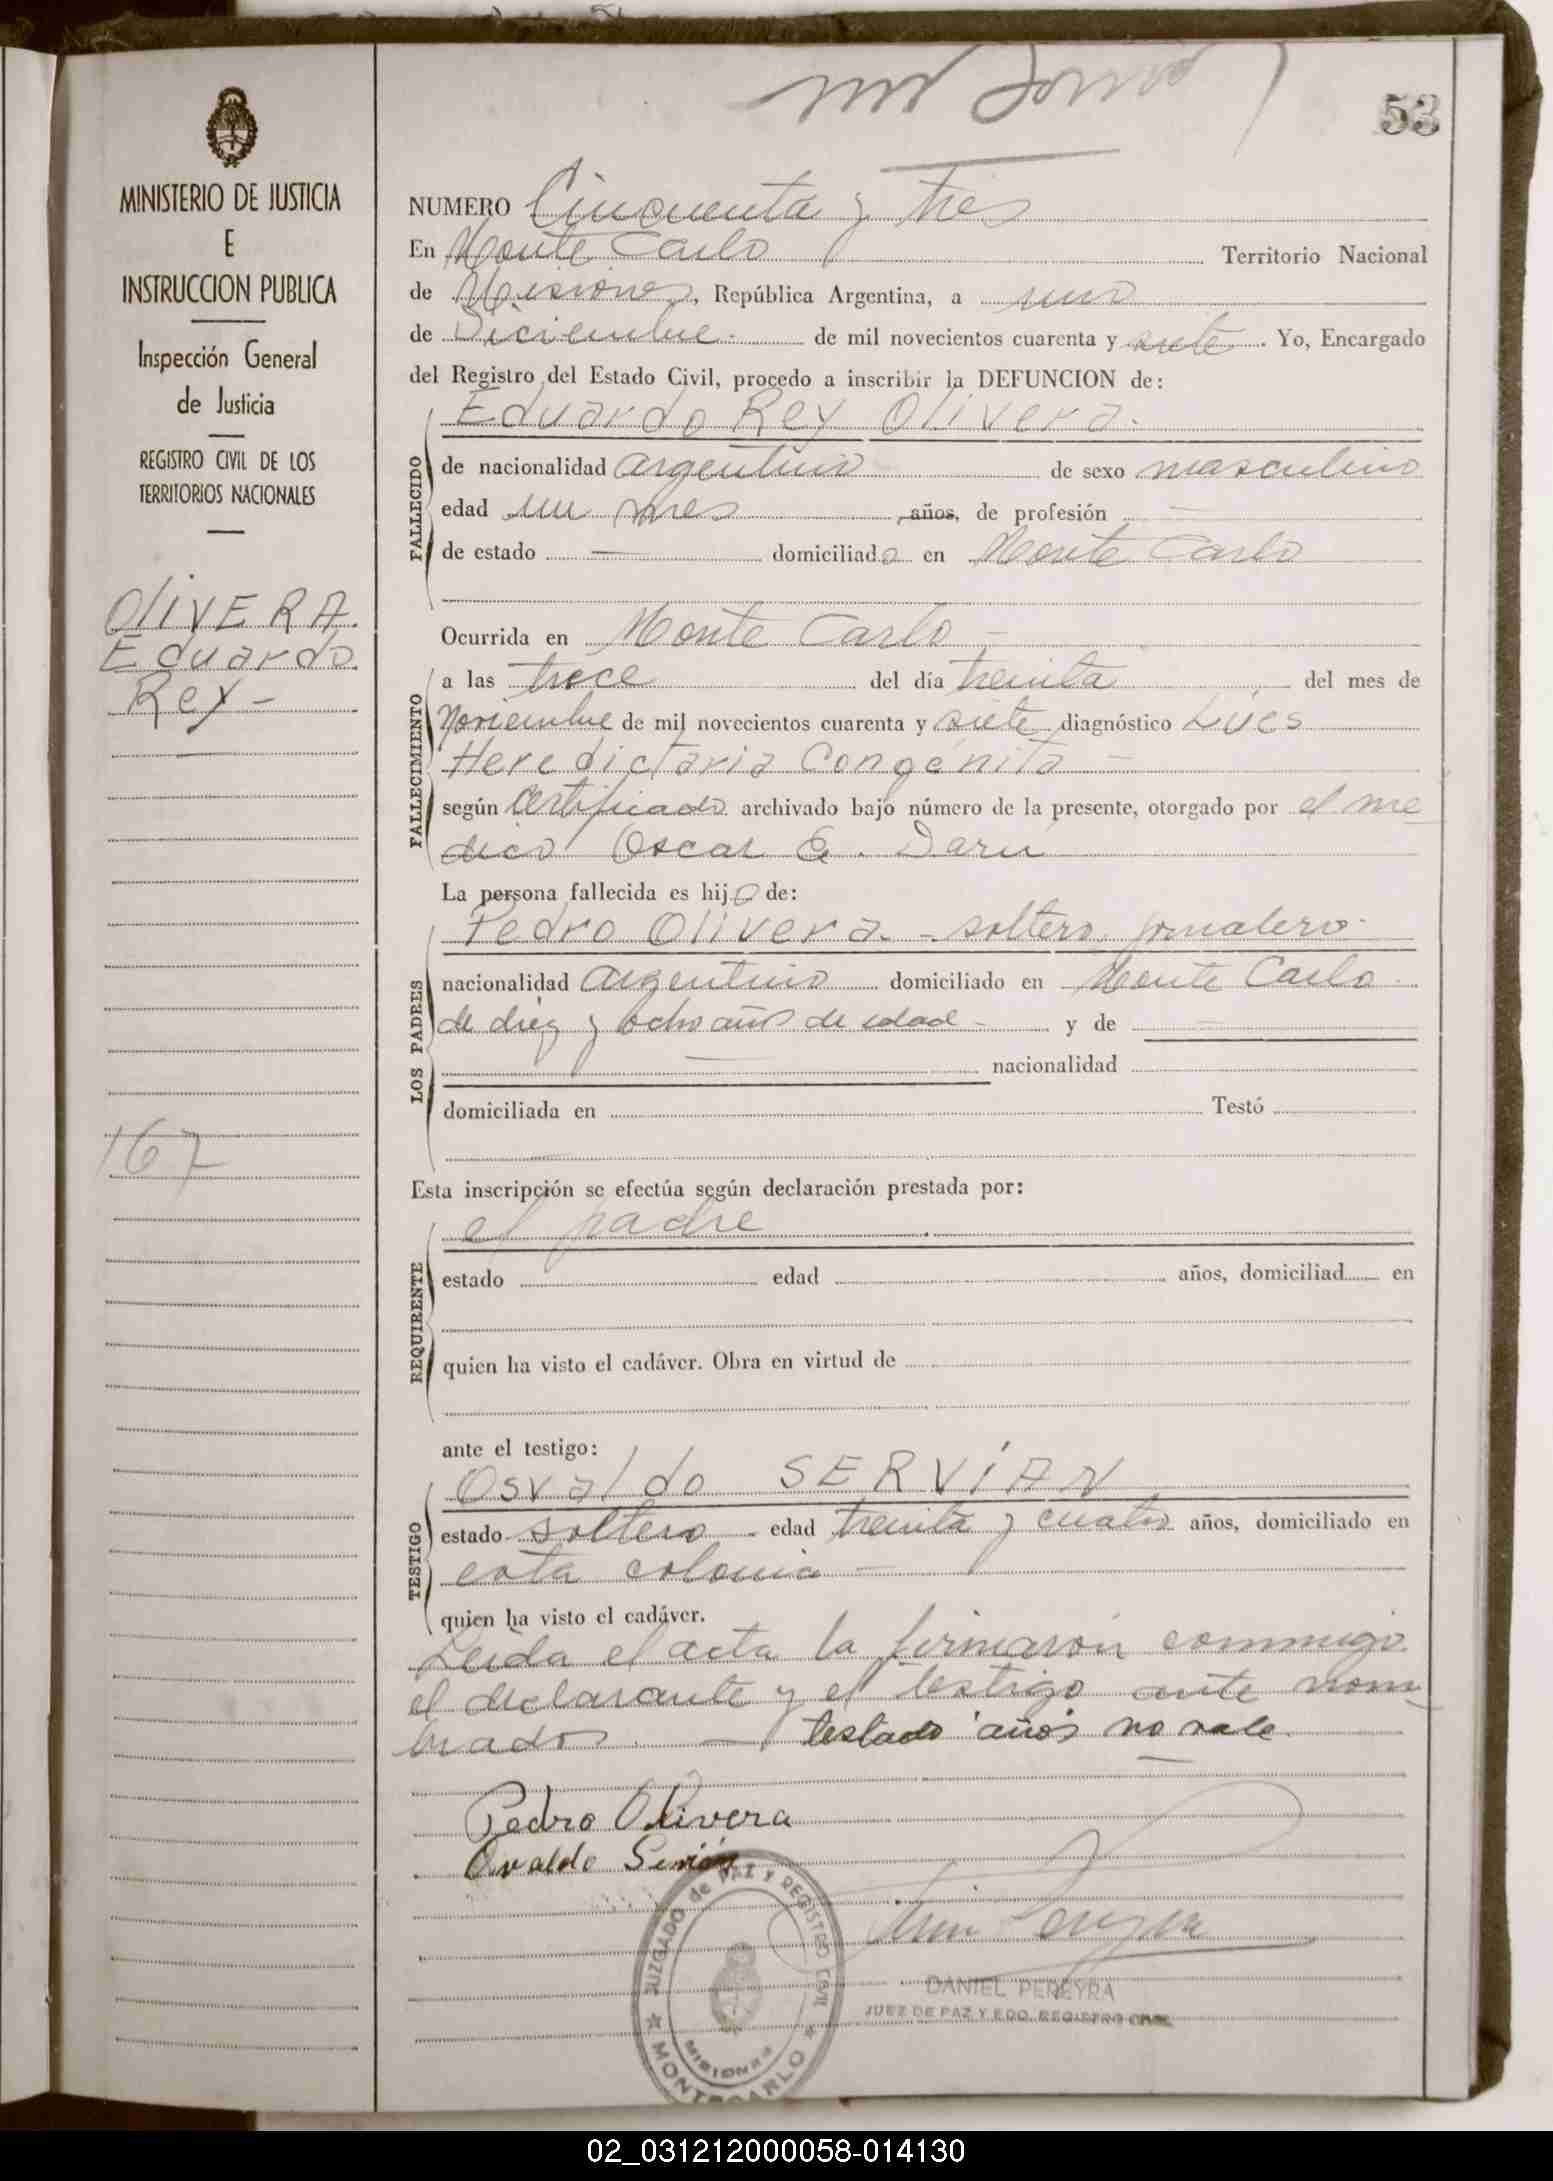 53
MINISTERIO DE JUSTICIA
E
INSTRUCCION PUBLICA
Inspección General
de Justicia
REGISTRO CIVIL DE LOS
TERRITORIOS NACIONALES
OLIVERA
Eduardo
Rey -
167
NUMERO Cincuenta y Tres
En Monte Carlo Territorio Nacional
de Misiones, República Argentina, a uno
de Diciembre de mil novecientos cuarenta y siete. Yo, Encargado
del Registro del Estado Civil, procedo a inscribir la DEFUNCION de:
Eduardo Rey Olivera.
FALLECIDO
de nacionalidad argentino de sexo masculino
edad un mes años, de profesión —
de estado — domiciliado en Monte Carlo
Ocurrida en Monte Carlo -
FALLECIMIENTO
a las trece del día treinta del mes de
Noviembre de mil novecientos cuarenta y siete diagnóstico Lúes
Heredictaria Congénita -
según certificado archivado bajo número de la presente, otorgado por el me
dico Oscar E. Darú
La persona fallecida es hijo de:
LOS PADRES
Pedro Olivera - soltero, jornalero
nacionalidad argentino domiciliado en Monte Carlo
de diez y ocho años de edad - y de —
— nacionalidad
domiciliada en Testó
Esta inscripción se efectúa según declaración prestada por:
REQUIRENTE
el padre
estado edad años, domiciliad en
quien ha visto el cadáver. Obra en virtud de
ante el testigo:
TESTIGO
Osvaldo SERVÍAN
estado soltero edad treinta y cuatro años, domiciliado en
esta colonia -
quien ha visto el cadáver.
Leida el acta la firmaron conmmigo
el declarante y el testigo ante nom
brados. — testado "años" no vale.
Pedro Olivera
Osvaldo Servián
JUZGADO de PAZ Y REGISTRO CIVIL
MISIONES
MONTECARLO
DANIEL PEREYRA
JUEZ DE PAZ Y EDO. REGISTRO CIVIL
02_031212000058-014130